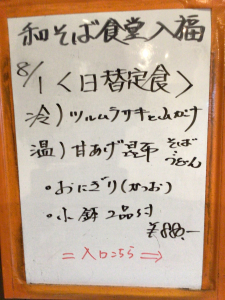 和そば食堂入福
8/1 <日替定食>
冷)ツルムラサキと山かけ
温)甘あげ昆布 そば・うどん
・おにぎり(かつお)
・小鉢2品付
¥880.-
=入口こちら⇒